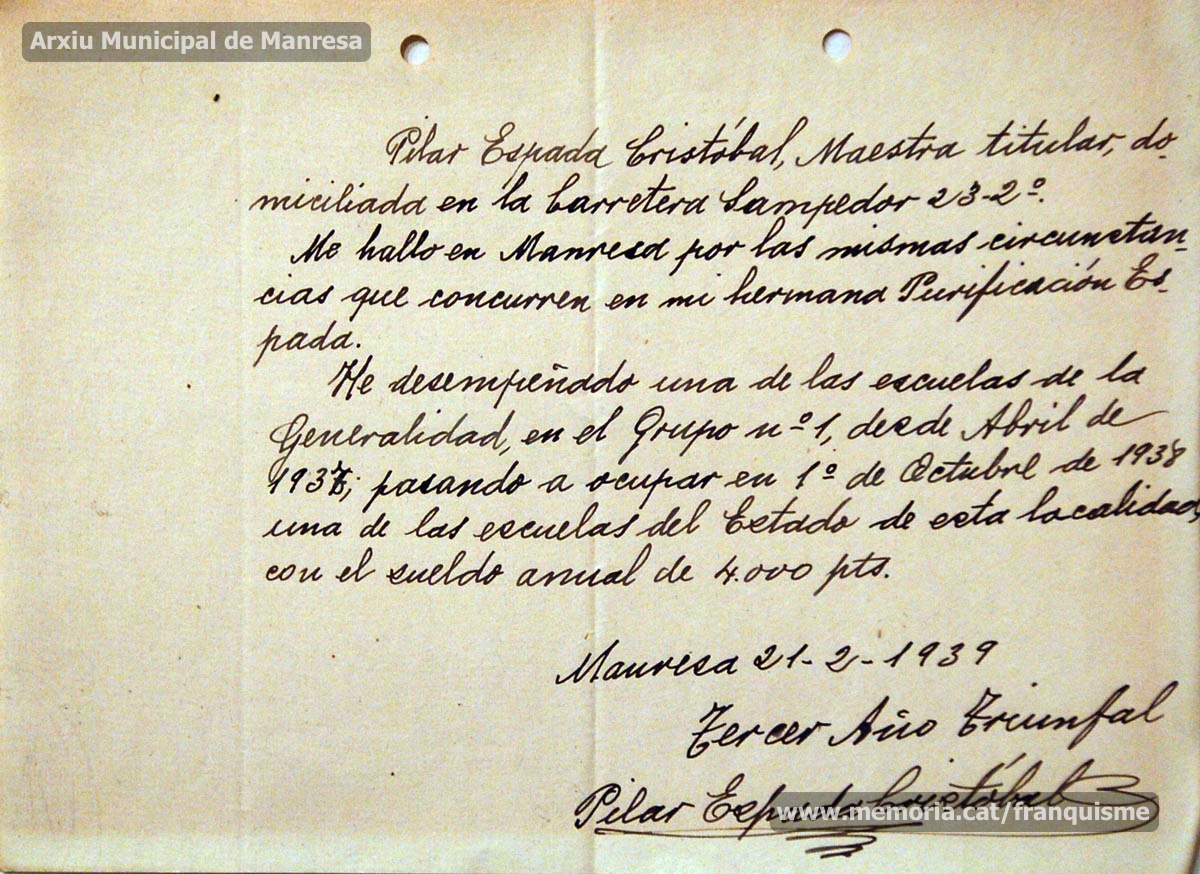 Arxiu Municipal de Manresa
Pilar Espada Cristóbal, Maestra titular, do-
miciliada en la Carretera Sampedor 23-2º.
Me hallo en Manresa por las mismas circunstan-
cias que concurren en mi hermana Purificación Es-
pada.
He desempeñado una de las escuelas de la
Generalidad, en el Grupo nº 1, desde Abril de
1937; pasando a ocupar en 1º de Octubre de 1938
una de las escuelas del Estado de esta localidad,
con el sueldo anual de 4.000 pts.
Manresa 21-2-1939
Tercer Año Triunfal
Pilar Espada Cristóbal
www.memoria.cat/franquisme